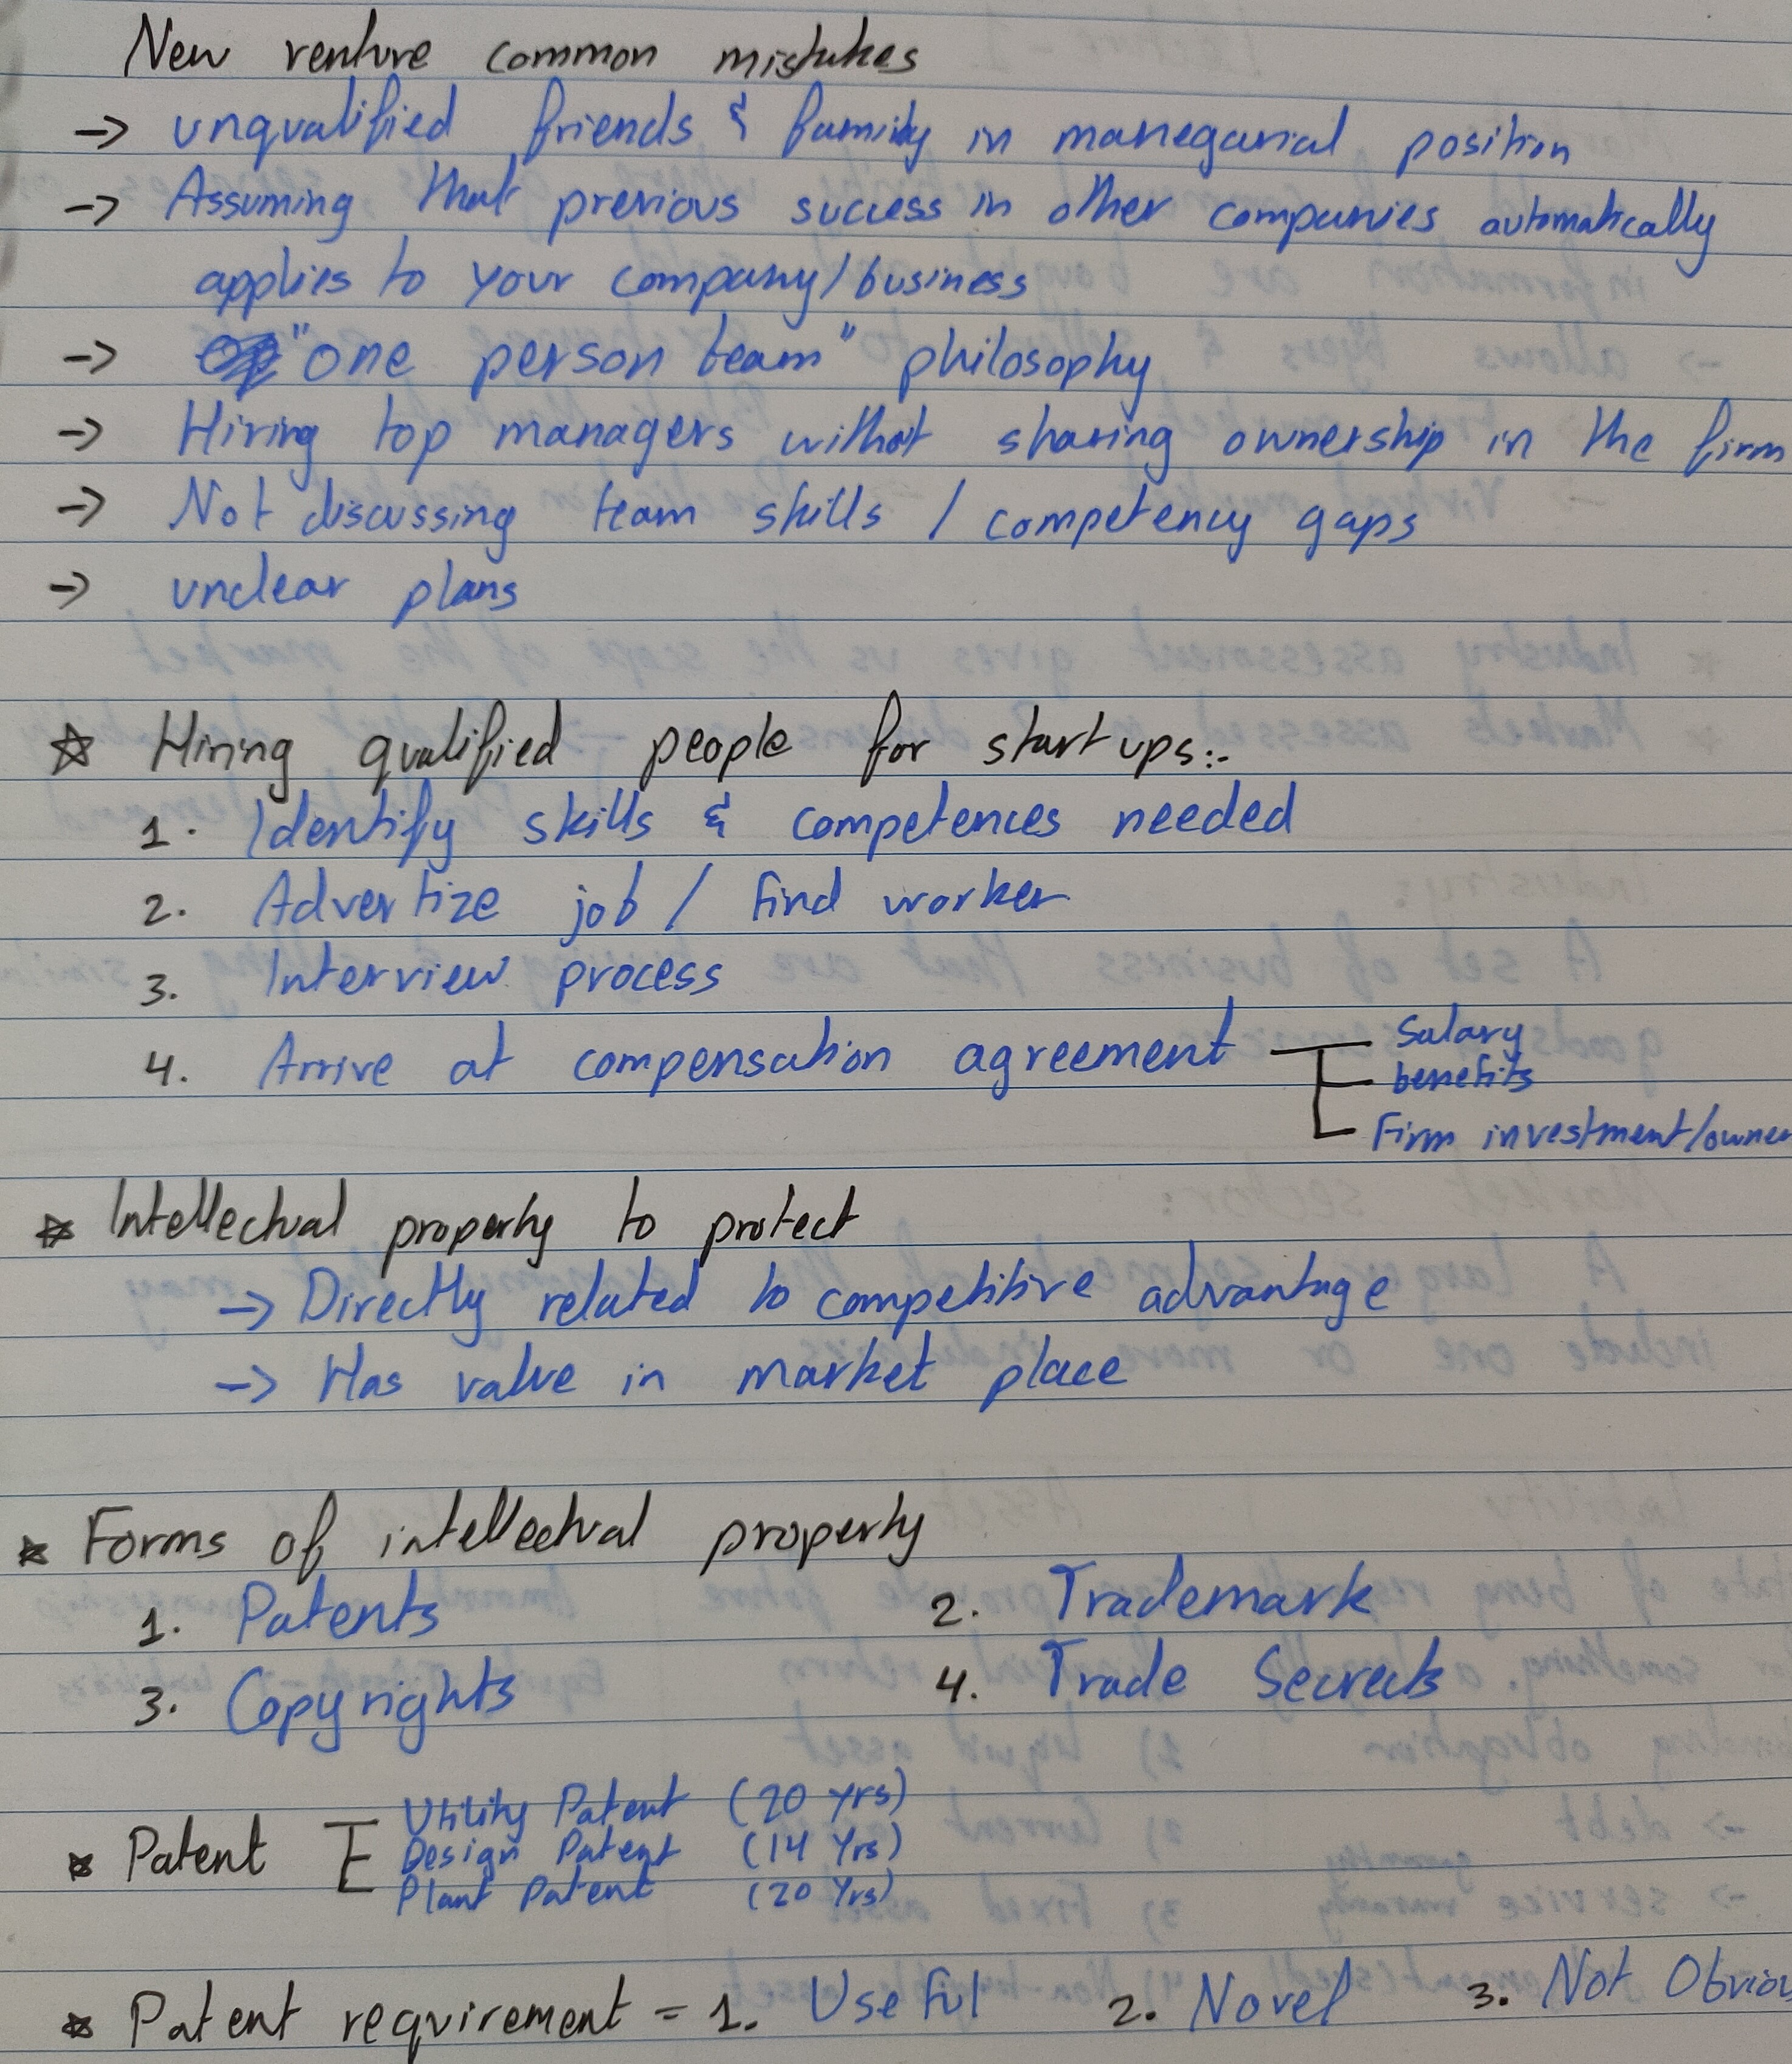 New venture common mistakes
→ unqualified friends & family in manegarial position
→ Assuming that previous success in other companies automatically
applies to your company/business
→ "one person team" philosophy
→ Hiring top managers without sharing ownership in the firm
→ Not discussing team skills / competency gaps
→ unclear plans
☆ Hiring qualified people for startups:-
1. Identify skills & competences needed
2. Advertize job / find worker
3. Interview process
4. Arrive at compensation agreement
Salary
benefits
Firm investment/owner
☆ Intellectual property to protect
→ Directly related to competitive advantage
→ Has value in market place
☆ Forms of intellectual property
1. Patents 2. Trademark
3. Copyrights 4. Trade Secrects
☆ Patent
Utility Patent (20 yrs)
Design Patent (14 Yrs)
Plant Patent (20 Yrs)
☆ Patent requirement = 1. Useful 2. Novel 3. Not Obviou